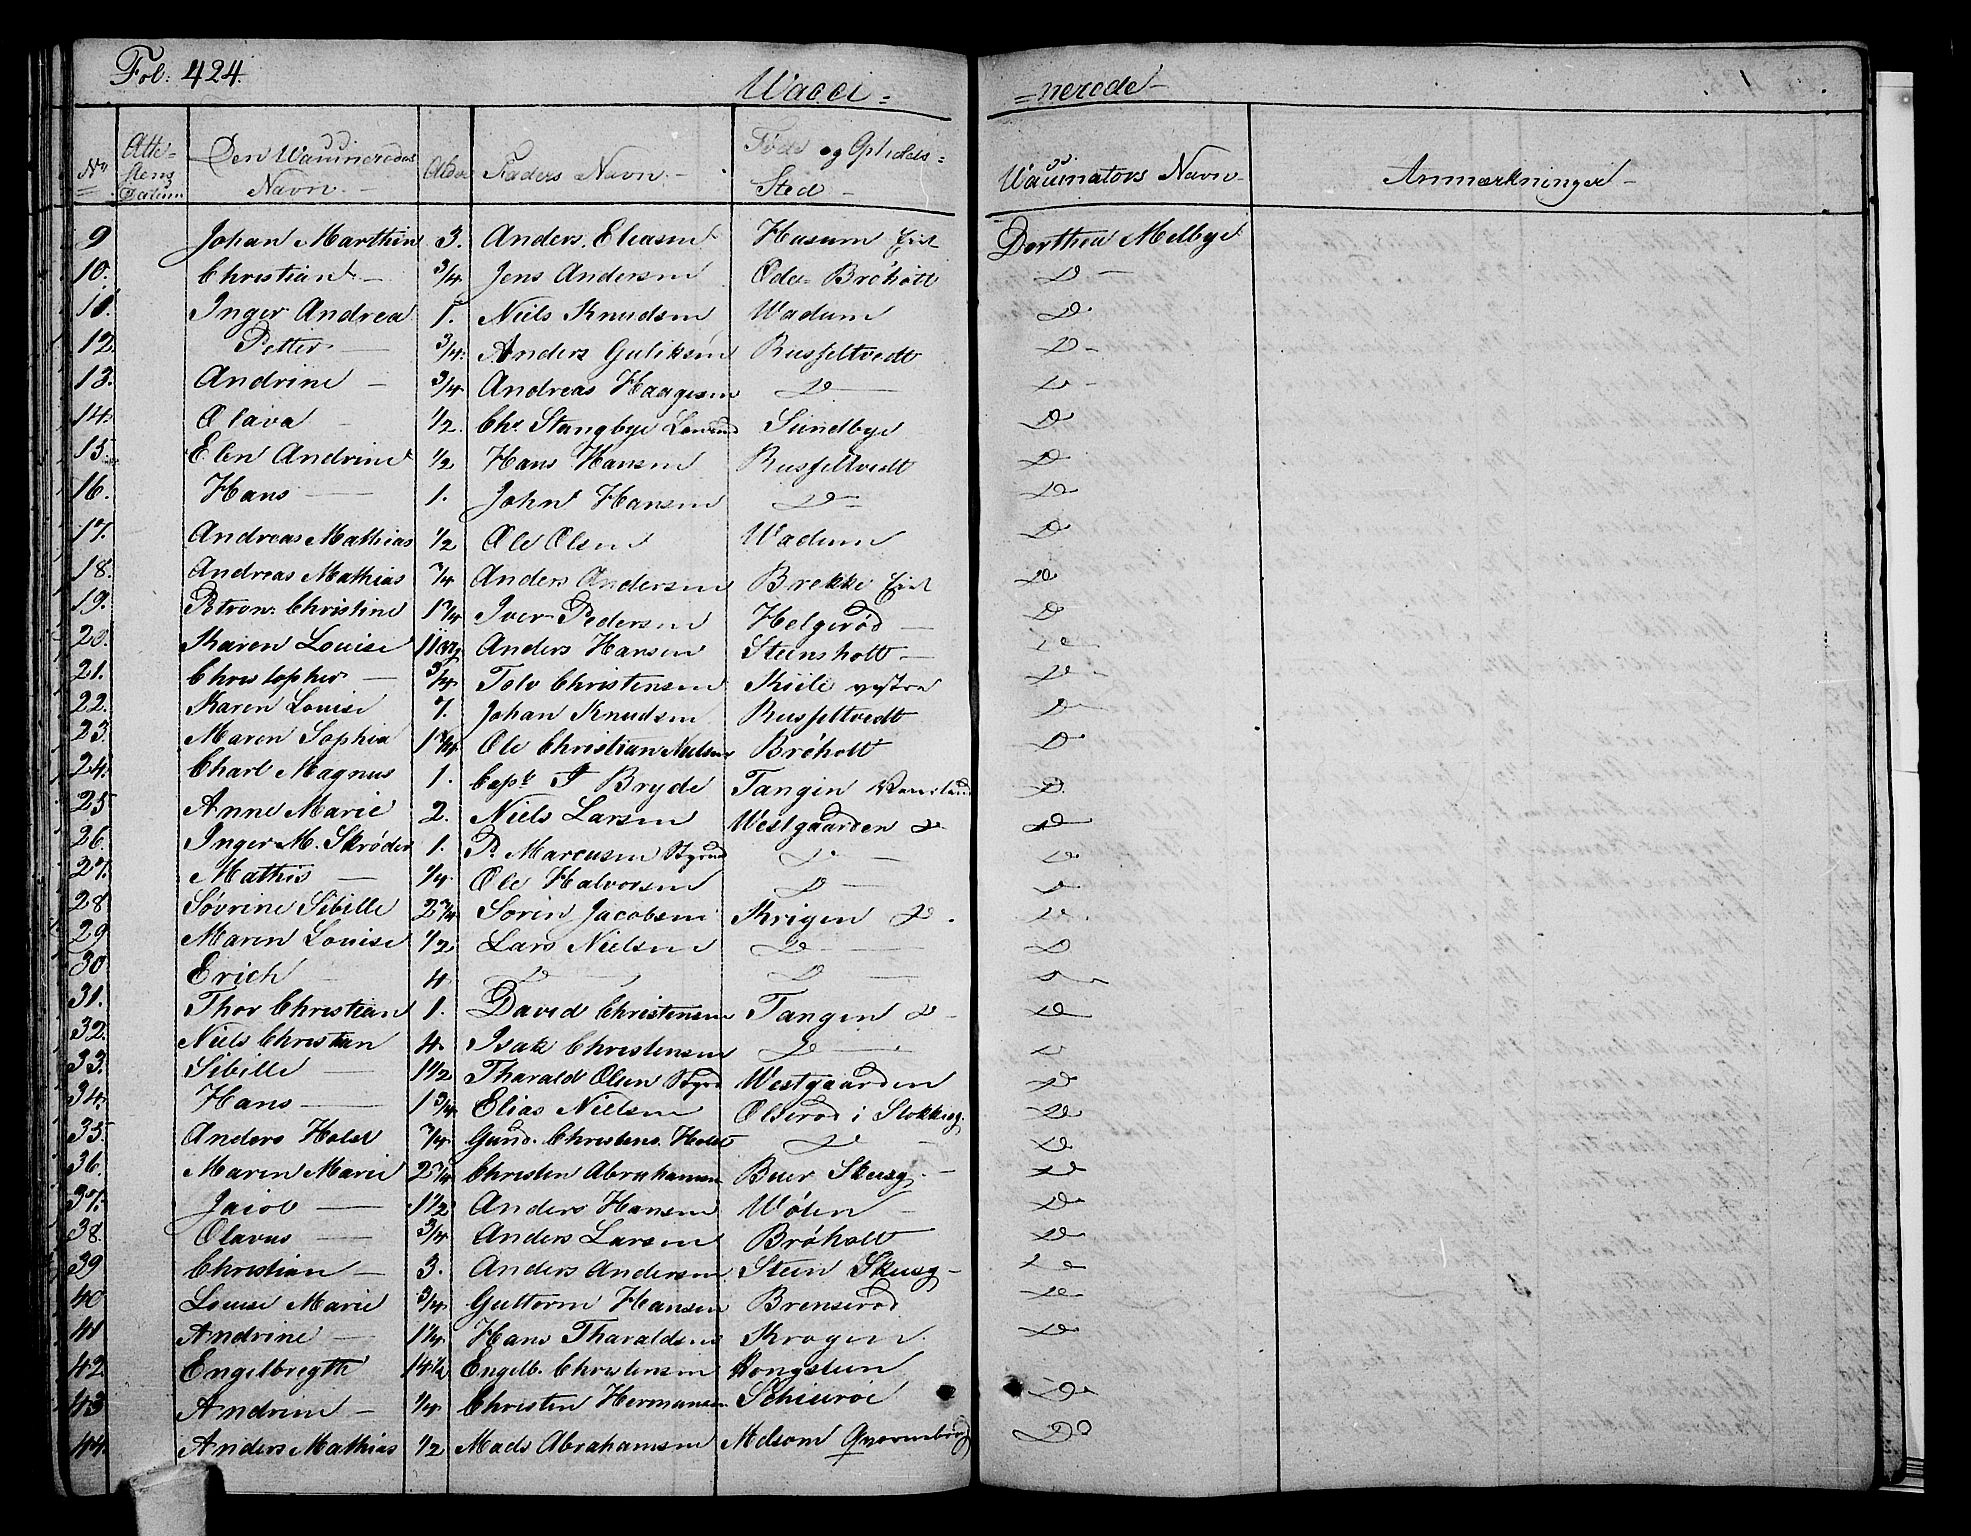 Fol: 424.
Vacci = = nerede
No Atte- stens Datum Den Vaccineredes Navn Alder Faders Navn Føde og Opholds= Sted Vaccinators Navn Anmærkninger
9 Johan Marthin 3. Anders Eliasen Hasum Dorthea Melbye
10. Christian 3/4 Jens Andersen Brøholt D
11. Inger Andrea 1. Niels Knudsen Wadum D
12. Petter 3/4 Anders Guliksen Russeltvedt D
13. Andrine 3/4 Andreas Haagesen D D
14. Olava 1/2 Chr. Stangbye Sundbye D
15. Elen Andrine 1/2 Hans Hansen Russeltvedt D
16. Hans 1. John Hansen D D
17. Andreas Mathias 1/2 Ole Olsen Wadum D
18. Andreas Mathias Anders Andersen Brekke D
19. Petron: Christine Iver Pedersen Helgerød D
20. Karen Louise Anders Hansen Steinsholt D
21. Christopher 3/4 Tolv Christensen Kiile vestre D
22. Karen Louise 7. Johan Knudsen Russeltvedt D
23. Maren Sophia Ole Christian Nielsen Brøholt D
24. Charl Magnus 1. Capt. Bryde Tangen D
25 Anne Marie 2. Niels Larsen Westgaarden D. D
26. Inger M. Skrøder 1. P. Marcusen Styrmd D D
27. Mathis 1/4 Ole Halvorsen D D
28. Søvrine Sibille Sørin Jacobsen Krigen D. D
29 Maren Louise 1/2 Lars Nielsen D D
30 Erich 4 D D D
31. Thor Christian 1. David Christensen Tangen D D
32. Niels Christian 4. Isak Christensen D D
33. Sibille 1 1/2 Tharald Olsen Styrd Westgaarden D
34. Hans 1 3/4 Elias Nielsen Olserød i Stokke D
35. Anders Holst Gund. Christens. Holst D D
36. Maren Marie 2 1/4 Christen Abrahamsen Buer D
37. Jacob 1 1/2 Anders Hansen Wølen D
38. Olavus 3/4 Anders Larsen Brøholt D
39 Christian 3. Anders Andersen Stein D
40 Louise Marie 3/4 Guttorm Hansen Brenserød D
41 Andrine 1 1/4 Hans Tharaldsen Krogen D
42. Engelbregth Engelb. Christensen Hongstein
43 Andrine 1/4 Christen Hermansen D
44. Anders Mathias 1/2 Mads Abrahamsen Melsom Do